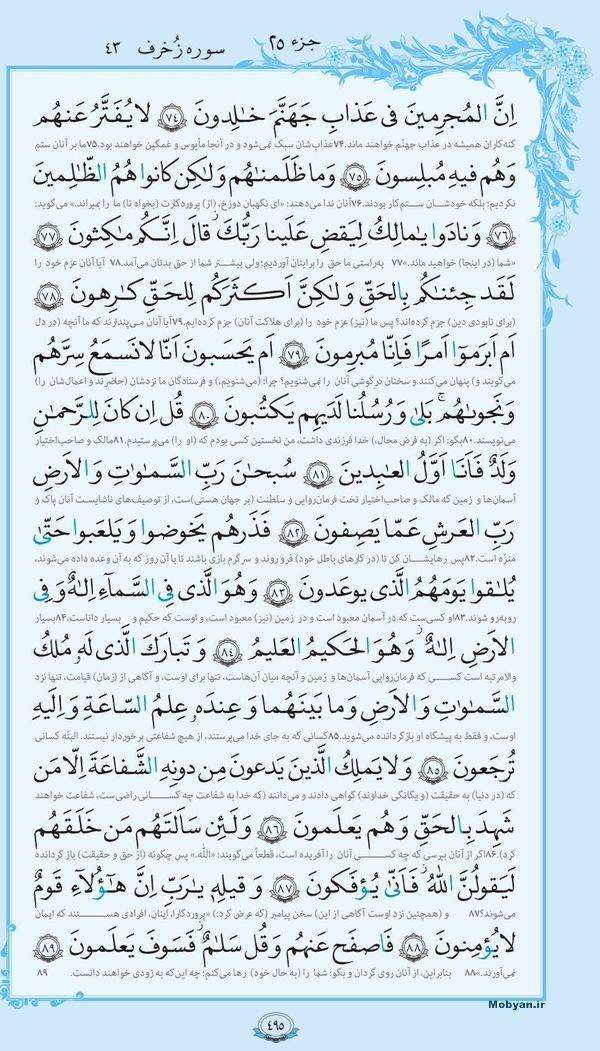 جزء ۲۵ سوره زُخرف ۴۳
اِنَّ المُجرِمینَ فی عَذابِ جَهَنَّمَ خٰلِدونَ ﴿۷۴﴾ لا یُفَتَّرُ عَنهُم
گنه‌کاران همیشه در عذاب جهنّم خواهند ماند.۷۴عذاب‌شان سبک نمی‌شود و در آنجا مأیوس و غمگین خواهند بود.۷۵ما بر آنان ستم
وَهُم فیهِ مُبلِسونَ ﴿۷۵﴾ وَما ظَلَمنٰهُم وَلٰکِن کانوا هُمُ الظّٰلِمینَ
نکردیم؛ بلکه خودشان ستم‌کار بودند.۷۶آنان ندا می‌دهند: «ای نگهبان دوزخ، (از) پروردگارت (بخواه تا) ما را بمیراند.» می‌گوید:
﴿۷۶﴾ وَنادَوا یٰمالِکُ لِیَقضِ عَلَینا رَبُّکَ ۖ قالَ اِنَّکُم ماکِثونَ ﴿۷۷﴾
«شما (در اینجا) خواهید ماند.»۷۷ به‌راستی ما حق را برایتان آوردیم؛ ولی بیشتر شما از حق بدتان می‌آمد.۷۸ آیا آنان عزم خود را
لَقَد جِئنٰکُم بِالحَقِّ وَلٰکِنَّ اَکثَرَکُم لِلحَقِّ کٰرِهونَ ﴿۷۸﴾
(برای نابودی دین) جزم کرده‌اند؟ پس ما (نیز) عزم خود را (برای هلاکت آنان) جزم کرده‌ایم.۷۹آیا آنان می‌پندارند که ما آنچه (در دل
اَم اَبرَموٓا اَمرًا فَاِنّا مُبرِمونَ ﴿۷۹﴾ اَم یَحسَبونَ اَنّا لا نَسمَعُ سِرَّهُم
می‌گویند و) پنهان می‌کنند و سخنان درگوشی آنان را نمی‌شنویم؟ چرا؛ (می‌شنویم،) و فرستادگان ما نزدشان (حاضرند و اعمال‌شان را)
وَنَجوىٰهُم ۚ بَلىٰ وَرُسُلُنا لَدَیهِم یَکتُبونَ ﴿۸۰﴾ قُل اِن کانَ لِلرَّحمٰنِ
می‌نویسند.۸۰بگو: اگر (به فرض محال،) خدا فرزندی داشت، من نخستین کسی بودم که (او را) می‌پرستیدم.۸۱مالک و صاحب‌اختیار
وَلَدٌ فَاَنَا اَوَّلُ العٰبِدینَ ﴿۸۱﴾ سُبحٰنَ رَبِّ السَّمٰوٰتِ وَالاَرضِ
آسمان‌ها و زمین که مالک و صاحب‌اختیار تخت فرمان‌روایی و سلطنت (بر جهان هستی)ست، از توصیف‌های ناشایست آنان پاک و
رَبِّ العَرشِ عَمّا یَصِفونَ ﴿۸۲﴾ فَذَرهُم یَخوضوا وَیَلعَبوا حَتّىٰ
منزّه است.۸۲پس رهایشان کن تا (در کارهای باطل خود) فرو روند و سرگرم بازی باشند تا با آن روز که به آن وعده داده می‌شوند،
یُلٰقوا یَومَهُمُ الَّذی یوعَدونَ ﴿۸۳﴾ وَهُوَ الَّذی فِی السَّمآءِ اِلٰهٌ وَفِی
روبه‌رو شوند.۸۳او کسی‌ست که در آسمان معبود است و در زمین (نیز) معبود است، و اوست که حکیم و بسیار داناست.۸۴بسیار
الاَرضِ اِلٰهٌ ۚ وَهُوَ الحَکیمُ العَلیمُ ﴿۸۴﴾ وَتَبارَکَ الَّذی لَهٗ مُلکُ
والامرتبه است کسی که فرمان‌روایی آسمان‌ها و زمین و آنچه میان آن‌هاست، تنها برای اوست، و آگاهی از (زمان) قیامت، تنها نزد
السَّمٰوٰتِ وَالاَرضِ وَما بَینَهُما وَعِندَهٗ عِلمُ السّاعَةِ وَاِلَیهِ
اوست، و فقط به پیشگاه او بازگردانده می‌شوید.۸۵کسانی که به جای خدا می‌پرستند، از هیچ شفاعتی برخوردار نیستند. البتّه کسانی
تُرجَعونَ ﴿۸۵﴾ وَلا یَملِکُ الَّذینَ یَدعونَ مِن دونِهِ الشَّفاعَةَ اِلّا مَن
که (در دنیا) به حقیقت (و یگانگی خداوند) گواهی دادند و می‌دانند (که خدا به شفاعت چه کسانی راضی‌ست، شفاعت خواهند
شَهِدَ بِالحَقِّ وَهُم یَعلَمونَ ﴿۸۶﴾ وَلَئِن سَاَلتَهُم مَن خَلَقَهُم
کرد).۸۶اگر از آنان بپرسی که چه کسی آنان را آفریده است، قطعاً می‌گویند: «الله.» پس چگونه (از حق و حقیقت) باز گردانده
لَیَقولُنَّ اللهُ ۖ فَاَنّىٰ یُؤفَکونَ ﴿۸۷﴾ وَقیلِهٖ یٰرَبِّ اِنَّ هٰٓؤُلآءِ قَومٌ
می‌شوند؟۸۷ و (همچنین نزد اوست آگاهی از این) سخن پیامبر (که عرض کرد:) «پروردگارا، اینان، افرادی هستند که ایمان
لا یُؤمِنونَ ﴿۸۸﴾ فَاصفَح عَنهُم وَقُل سَلٰمٌ ۚ فَسَوفَ یَعلَمونَ ﴿۸۹﴾
نمی‌آورند.»۸۸ بنابراین، از آنان روی گردان و بگو: شما را (به حال خود) رها می‌کنم؛ چه این‌که به زودی خواهند دانست. ۸۹
Mobyan.ir
۴۹۵